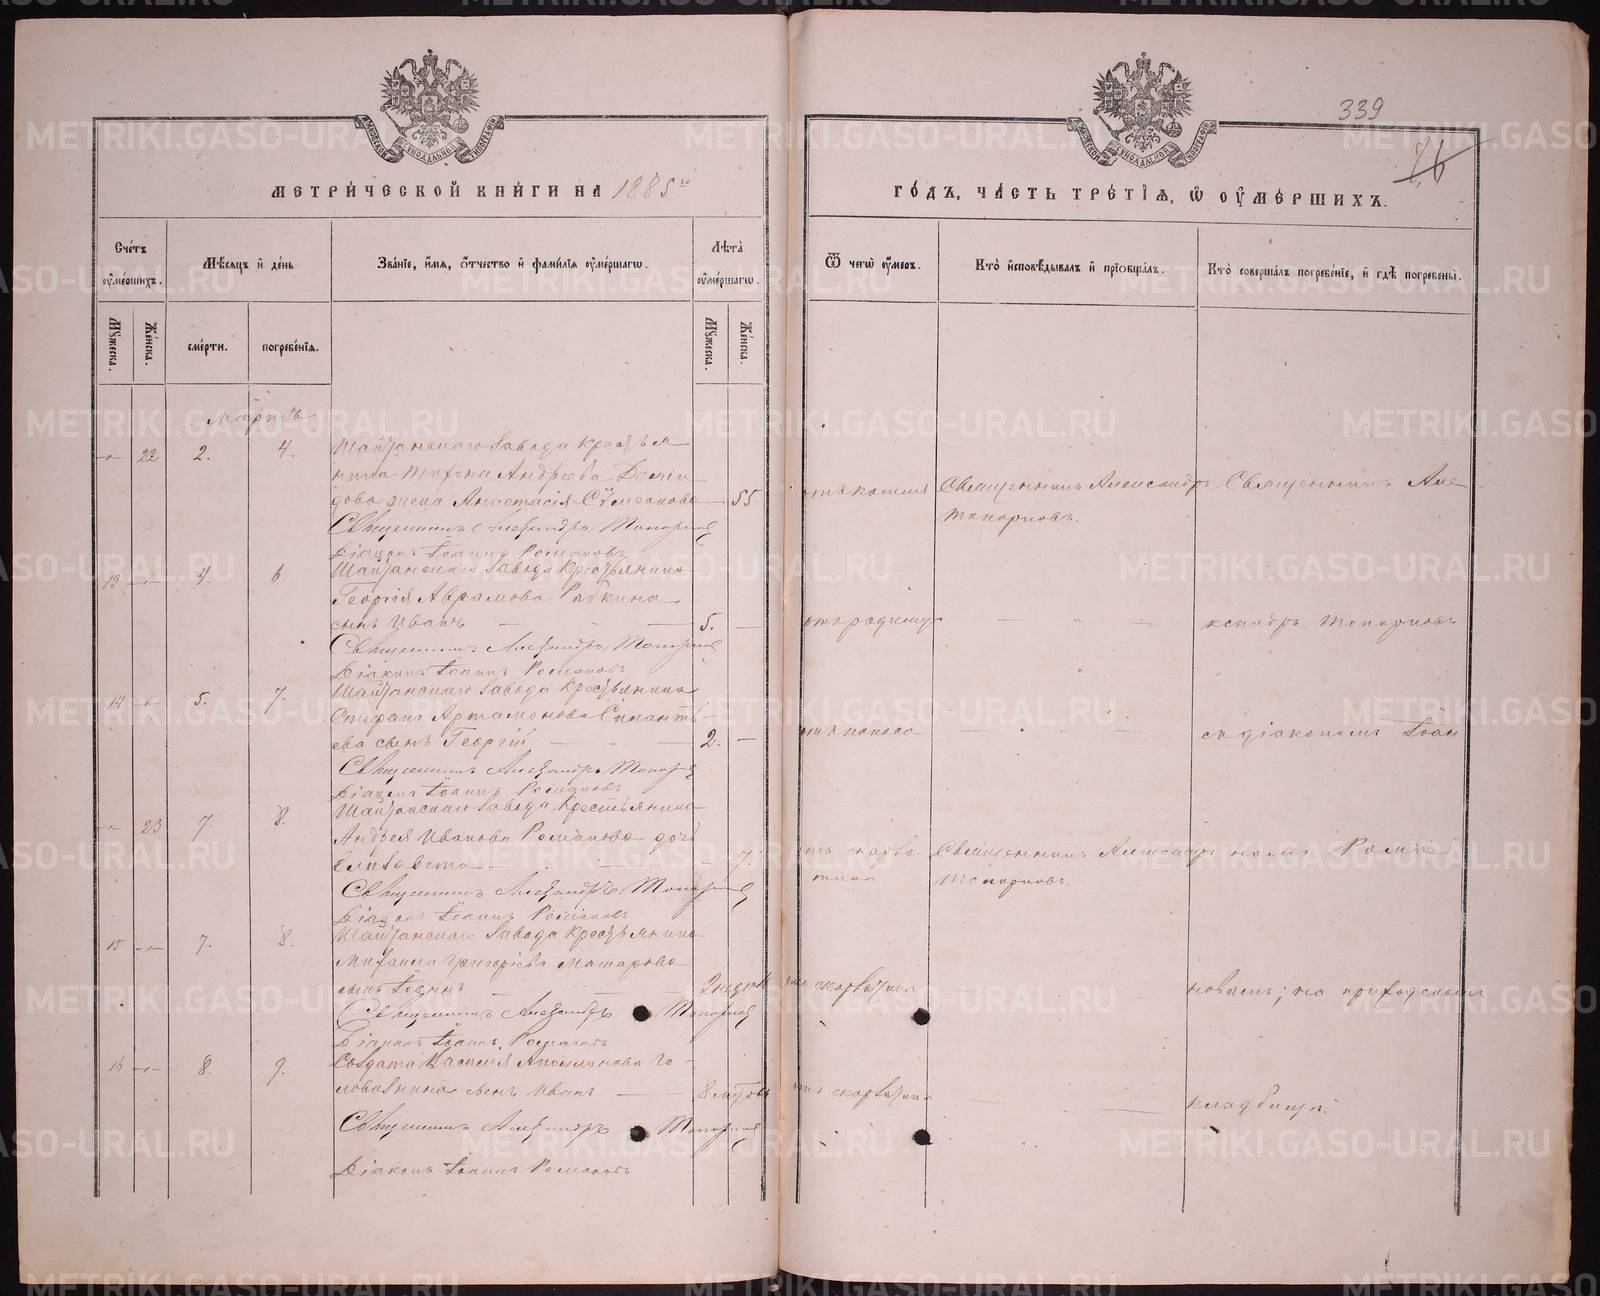 339
26
МЕТРИЧЕСКОЙ КНИГИ НА 1885
ГОДЪ, ЧАСТЬ ТРЕТІЯ, Ѡ ОУМЕРШИХЪ.
Счетъ оумершихъ.
Мѣсяцъ и день
Званіе, имя, отчество и фамилія оумершагѡ.
Лѣта оумершагѡ.
Ѿ чегѡ оумеръ.
Кто исповѣдывалъ и пріобщалъ.
Кто совершалъ погребеніе, и гдѣ погребены.
Мужеска.
Женска.
смерти.
погребенія.
Мужеска.
Женска.
Мартъ
22 2. 4. Шайтанскаго завода крестья
нина Тихона Андреева Деми
дова жена Анастасія Сѵмеонова 55 отъ кашля Священникъ Александръ Священникъ Але
Топорковъ.
Священникъ Александръ Топорковъ
Діаконъ Іоаннъ Романовъ
13 4. 6. Шайтанскаго завода крестьянина
Георгія Аврамова Рябкина
сынъ Иванъ 5. отъ родимца ксандръ Топорковъ
Священникъ Александръ Топорковъ
Діаконъ Іоаннъ Романовъ
14 5. 7. Шайтанскаго завода крестьянина
Стефана Артамонова Силантъ
ева сынъ Георгій 2. отъ поноса съ діакономъ Іоан
Священникъ Александръ Топорковъ
Діаконъ Іоаннъ Романовъ
23 7. 8. Шайтанскаго завода крестьянина
Андрея Иванова Романова дочь
Елизавета 7. отъ скарла Священникъ Александръ номъ Рома
тины Топорковъ.
Священникъ Александръ Топорковъ
Діаконъ Іоаннъ Романовъ
15 7. 8. Шайтанскаго завода крестьянина
Михаила Григоріева Макарова
сынъ Іоаннъ 2 недѣль новымъ; на приходскомъ
Священникъ Александръ Топорковъ
Діаконъ Іоаннъ Романовъ
16 8. 9. Солдата Василія Аполлонова Го
ловизнина сынъ Иванъ 8 кладбищѣ.
Священникъ Александръ Топорковъ
Діаконъ Іоаннъ Романовъ
METRIKI.GASO-URAL.RU